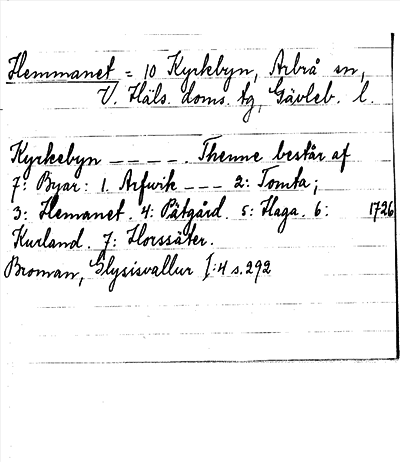 Hemmanet = 10 Kyrkbyn, Arbrå sn,
V. Häls. doms. tg, Gävleb. l.
Kyrkebyn _ _ _ _ . Thenne består af
7: Byar: 1. Arfwik _ _ _ 2: Tomta;
3: Hemanet. 4: Pätgård. 5: Haga. 6: 1726
Kurland. 7: Horssäter.
Broman, Glysisvallur I:4 s.292